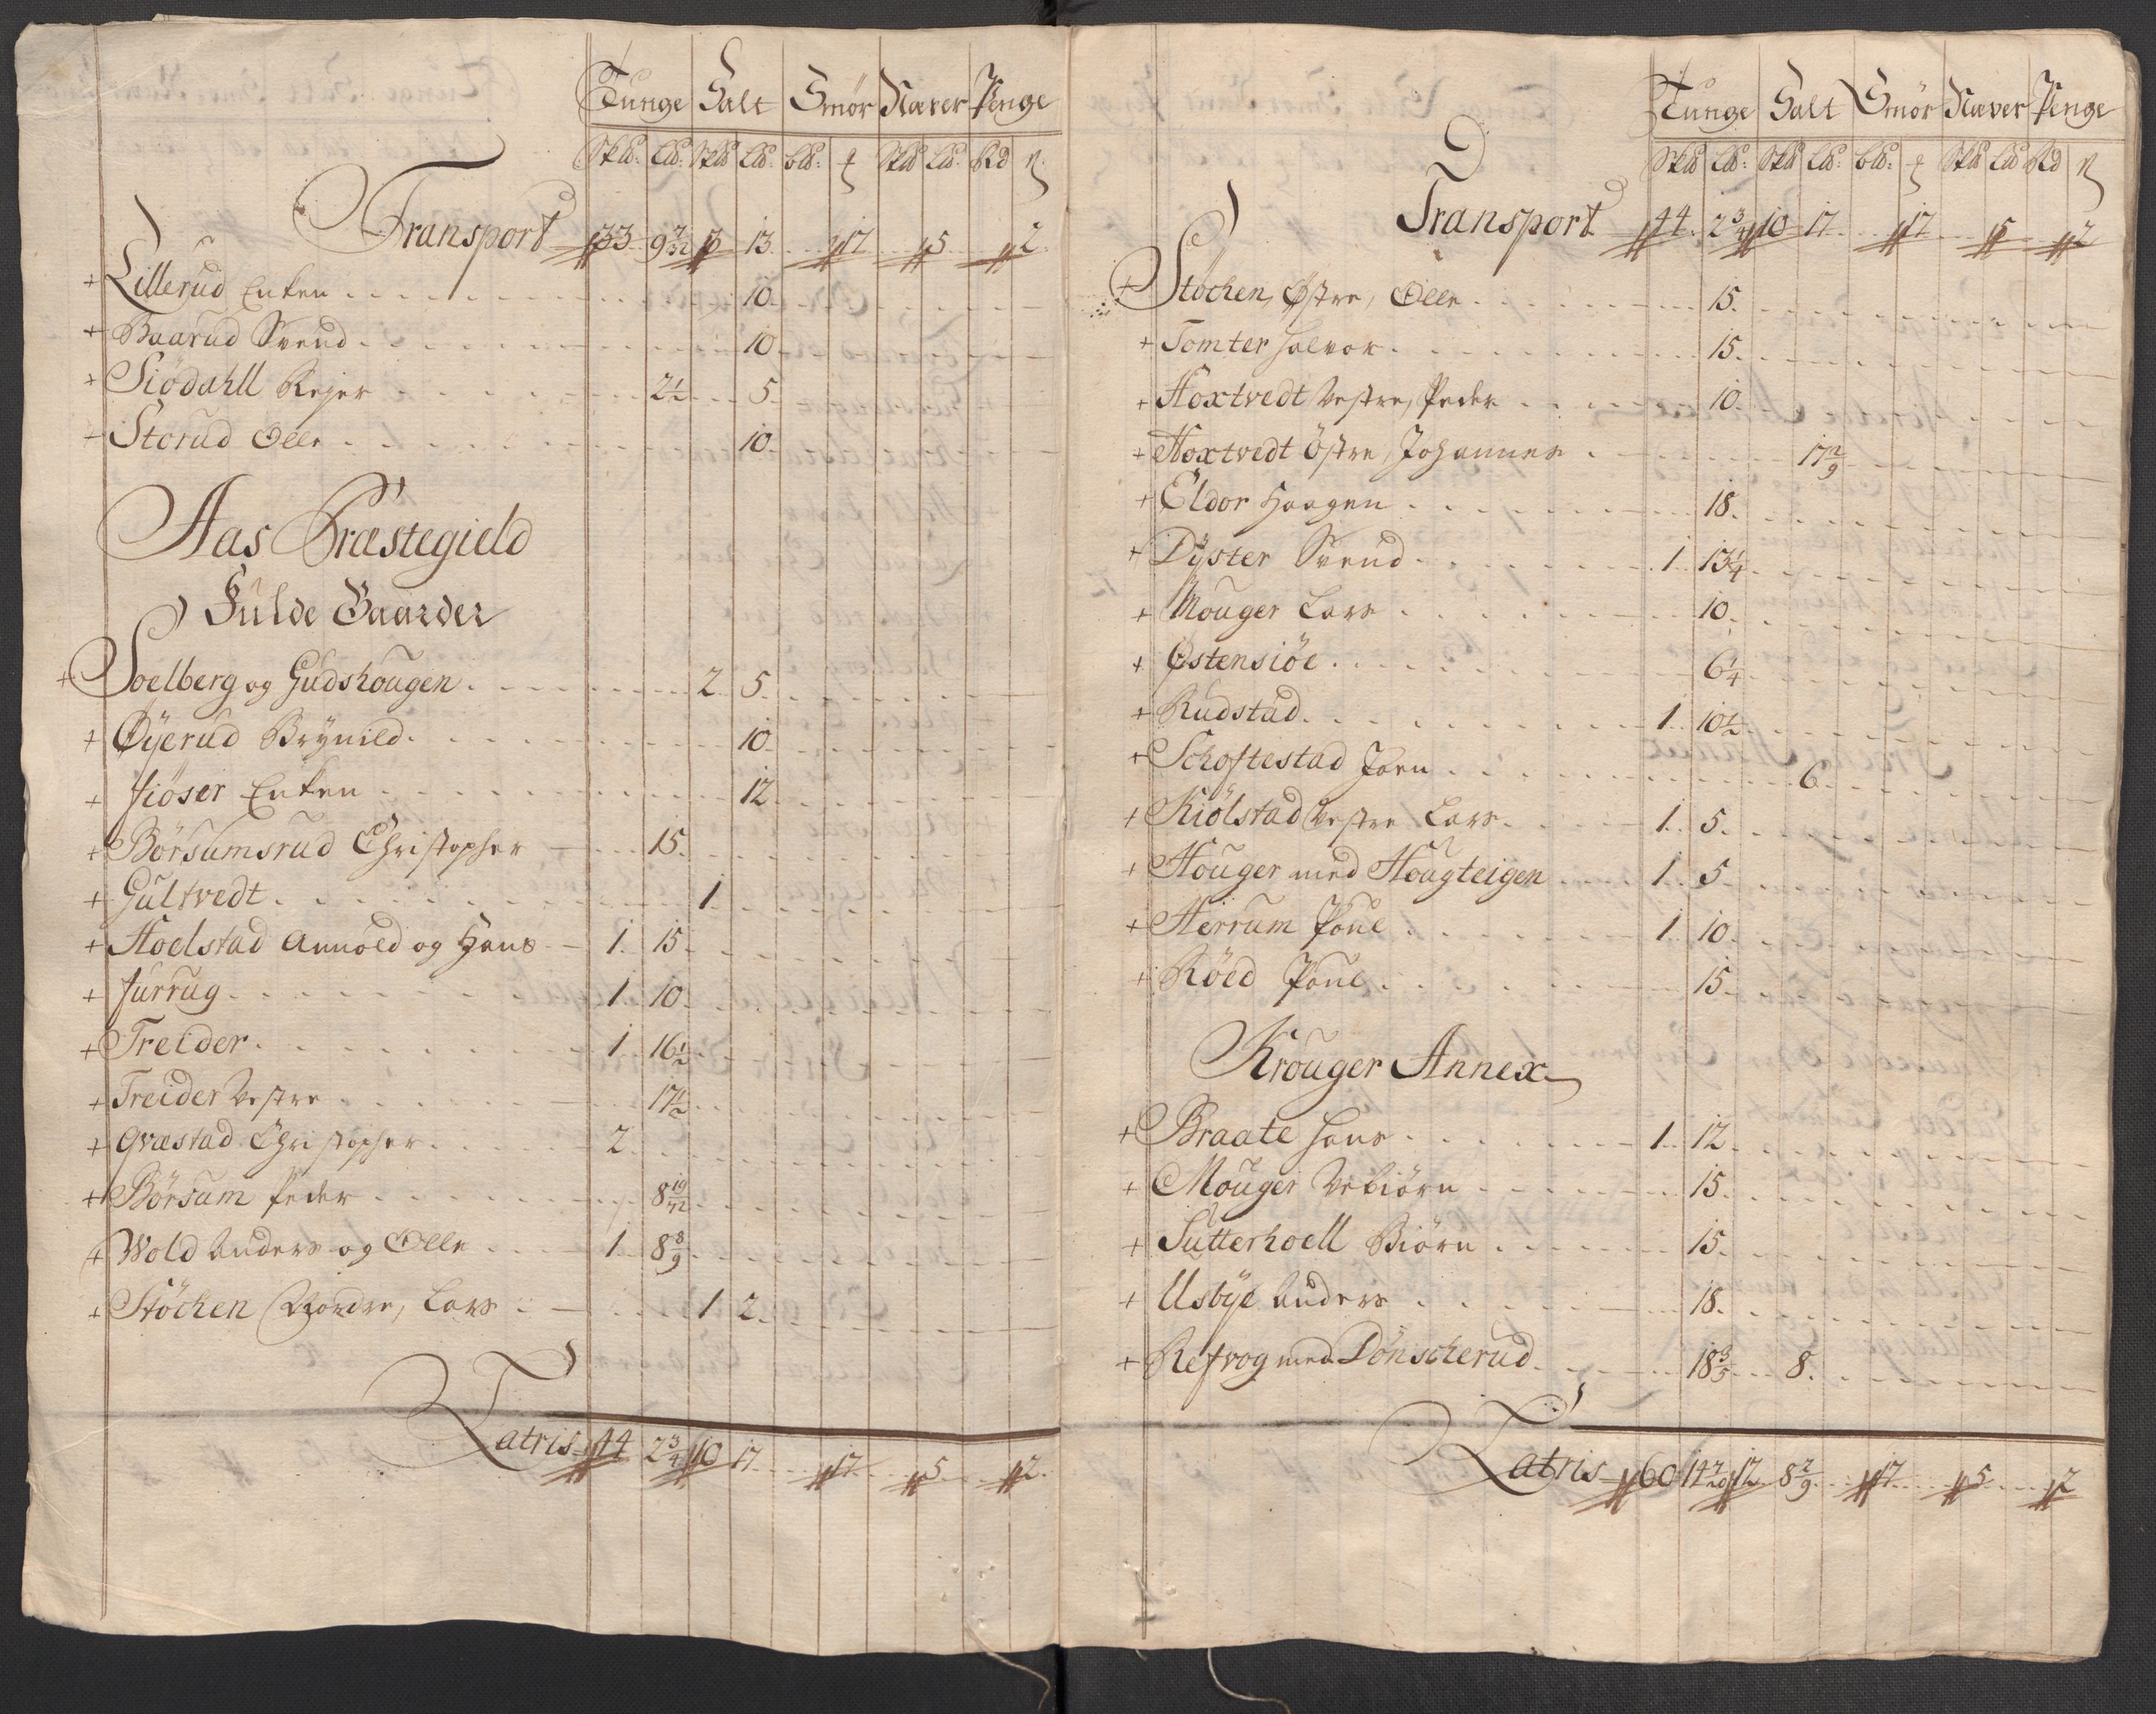 Tunge Salt Smör Næver Penge
Sk℔: L℔: Sk℔ L℔: b℔: Sk℔ L℔: Rd
Transport 33 9 13 17 5 2
+ Lillerud Enken 10
+ Baarud Svend 10
+ Siödahll Rejer 2½ 5
+ Storud Olle 10
Aas Præstegield
Fulde Gaarder
+ Soelberg og Gudshougen 2 5
+ Øÿerud Brÿnild 10
+ Kiöser Enken 12
+ Börsumsrud Christopher 15
+ Gultvedt 1
+ Hoelstad Annold og Hans 1 15
+ Kurrug 1 10
+ Treider 1 16½
+ Treider Vestre 17½
+ Qvæstad Christopher 2
+ Börsum Peder 8 19/72
+ Wold Anders og Olle 1 8 8/9
+ Stöchen Nordre, Lars 1 2
Latris 44 2¾ 10 17 17 5 2
Tunge Salt Smör Næver Penge
Sk℔ L℔: Sk℔ L℔: b℔: Sk℔ L℔ Rd
Transport 44 2¾ 10 17 17 5 2
+ Stöchen, Østre, Olle 15
+ Tomter Halvor 15
+ Hoxtvedt Vestre, Peder 10
+ Hoxtvedt Östre, Johannes 17 2/9
+ Eldor Haagen 18
+ Dÿster Svend 1 13¼
+ Mouger Lars 10
+ Østensiöe 6¼
+ Rudstad 1 10½
+ Schoftestad Jörn 6
+ Kiölstad Vestre Lars 1 5
+ Houger med Hougteigen 1 5
+ Herrum Poul 1 10
+ Röed Poul 15
Krouger Annex
+ Braate Hans 1 12
+ Mouger Vebiörn 15
+ Sutterhoell Biörn 15
+ Usbÿe Anders 18
+ Refvog med Dönscherud 18 3/5 8
Latris 60 14 7/20 12 8 2/9 17 5 2